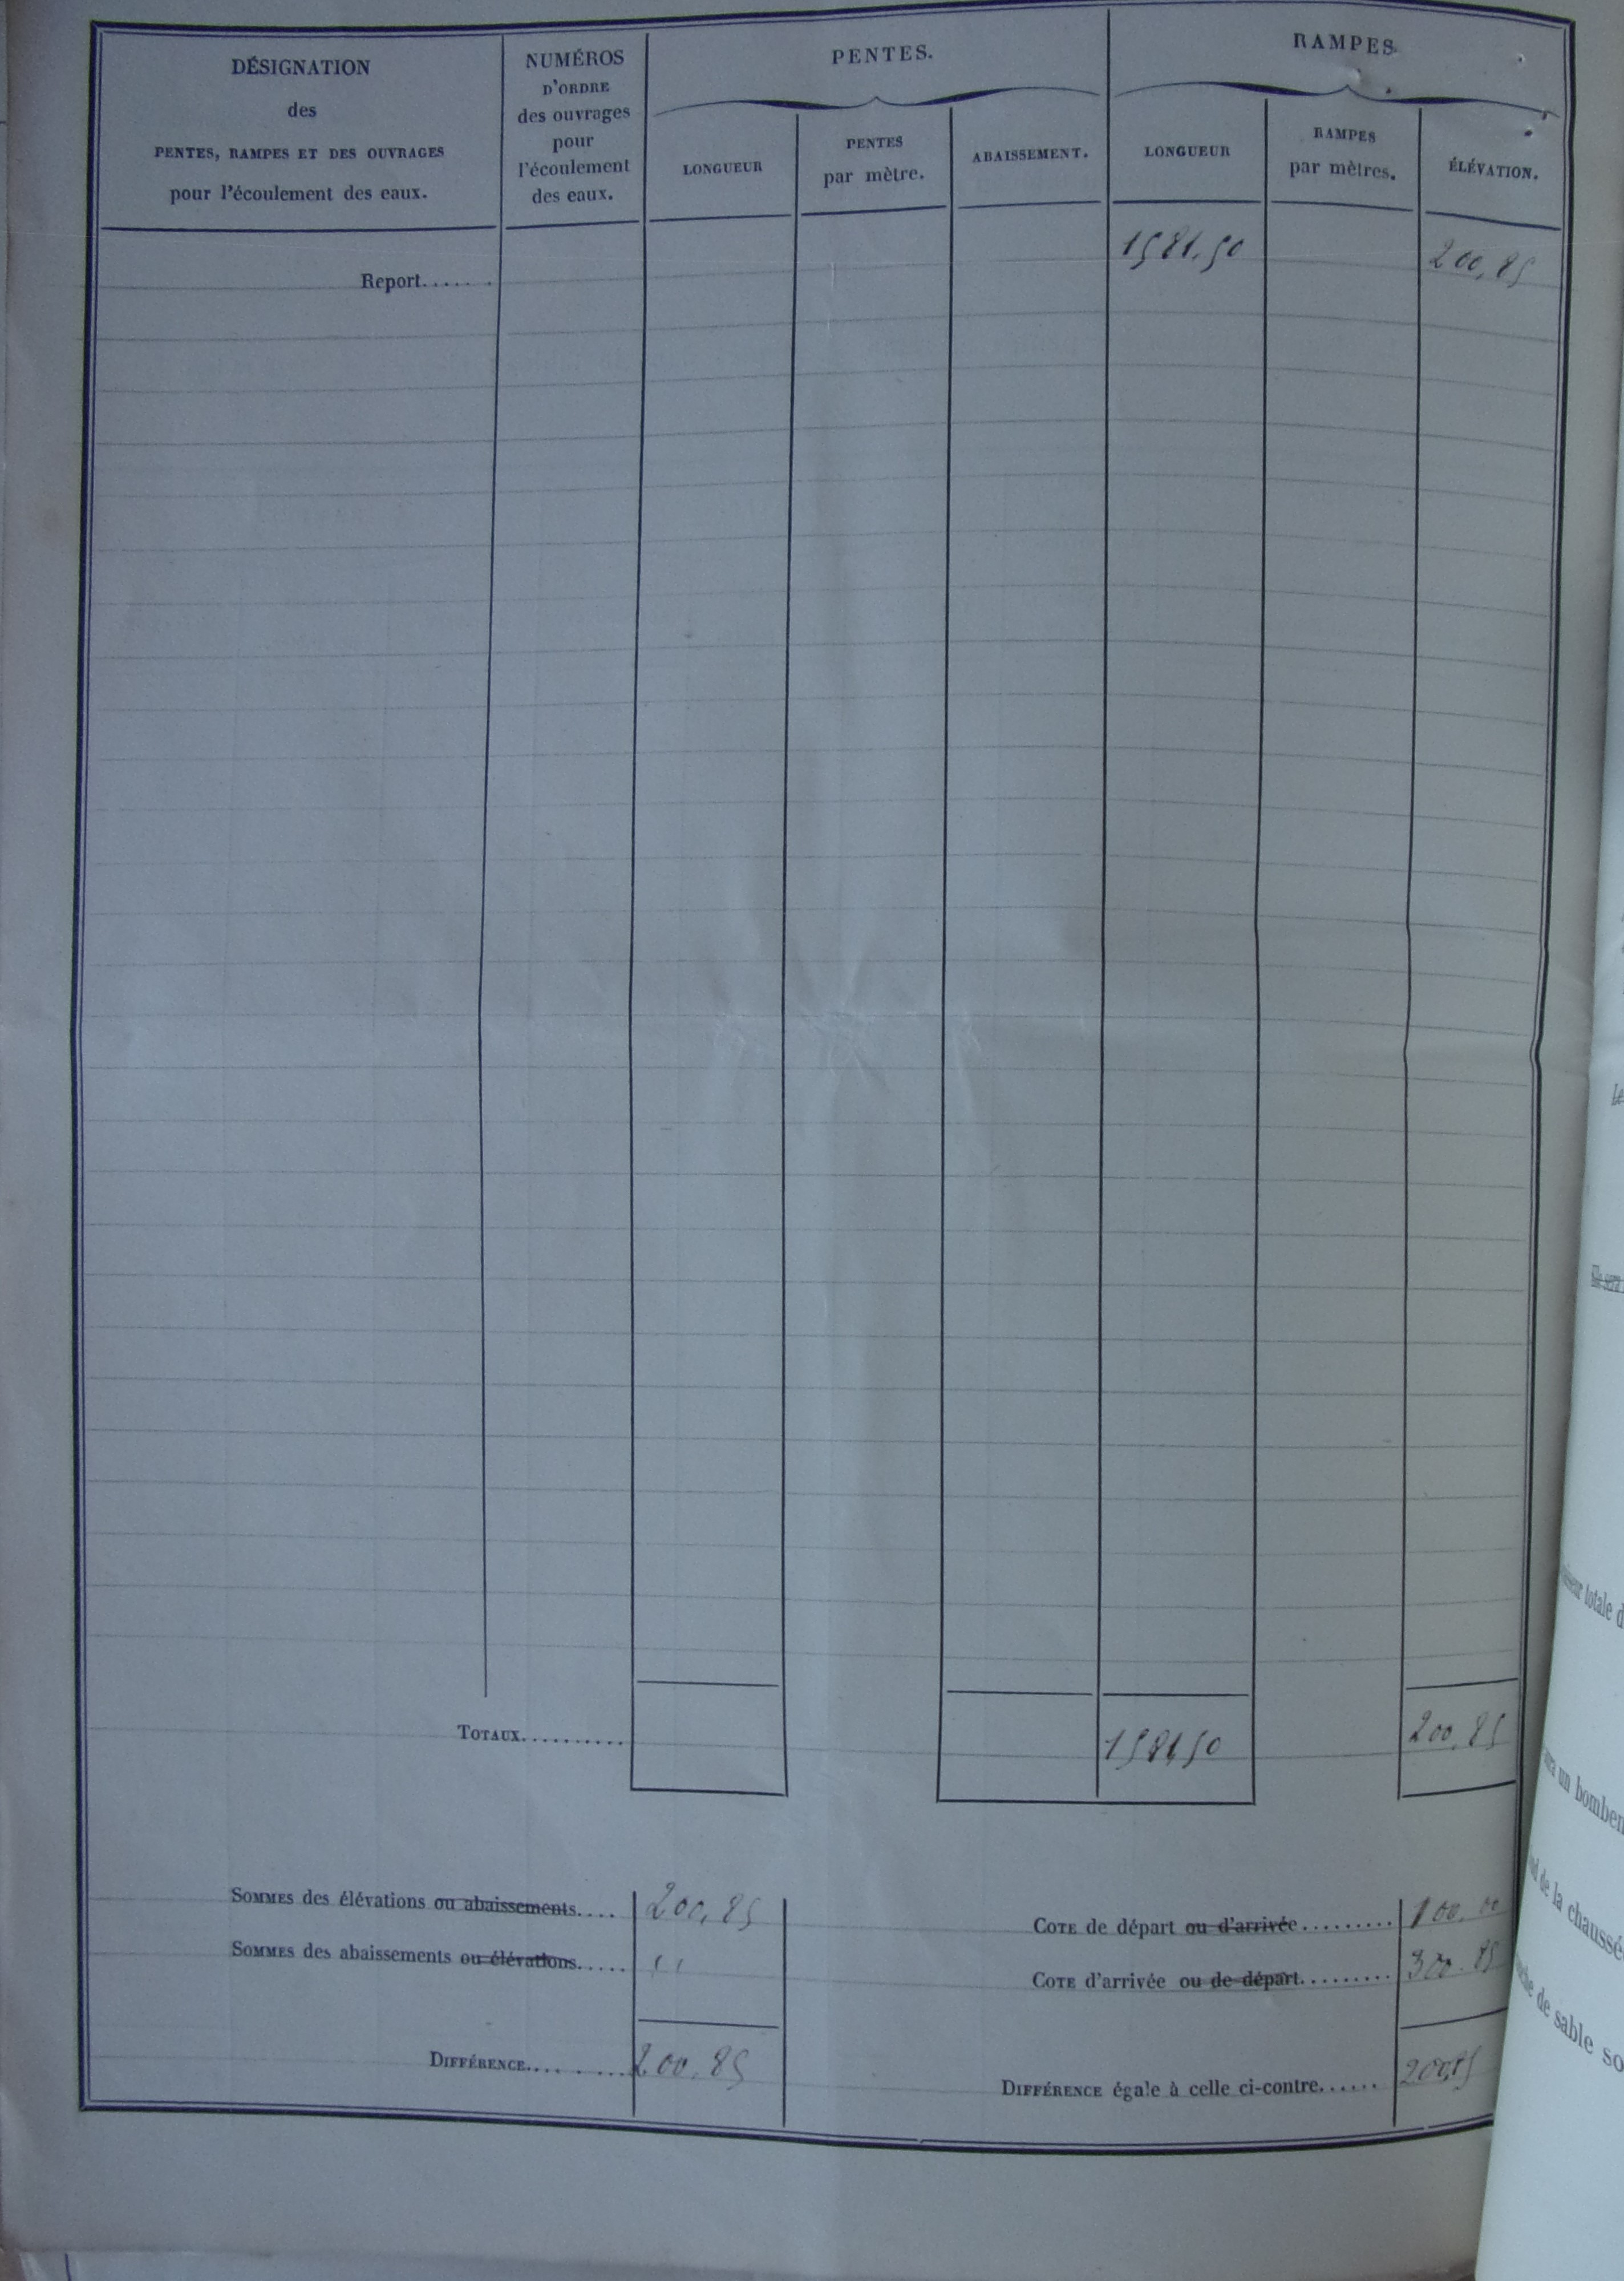 DÉSIGNATION
des
PENTES, RAMPES ET DES OUVRAGES
pour l'écoulement des eaux.
NUMÉROS
D'ORDRE
des ouvrages
pour
l'écoulement
des eaux.
PENTES.
LONGUEUR
PENTES
par mètre.
ABAISSEMENT.
RAMPES
LONGUEUR
RAMPES
par mètres.
ÉLÉVATION.
Report...... 1581.50 200,85
TOTAUX.......... 158150 200,85
SOMMES des élévations ou abaissements.... 200,85
SOMMES des abaissements ou élévations..... ,,
DIFFÉRENCE......... 200.85
COTE de départ ou d'arrivée......... 100.00
COTE d'arrivée ou de départ......... 300.85
DIFFÉRENCE égale à celle ci-contre...... 200,85
Le
Elle sera
totale d
un bombem
de la chaussée
de sable so